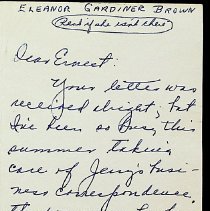 ELEANOR GARDINER BROWN
Dear Ernest:
Your letter was
received alright, but
I've been so busy this
summer taking
care of Jerry's busi-
ness correspondence,